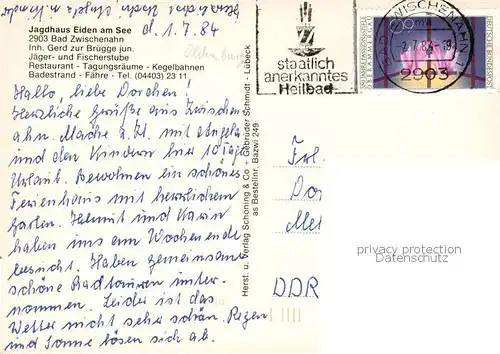 d. 1.7.84
Jagdhaus Eiden am See
2903 Bad Zwischenahn
Inh. Gerd zur Brügge jun.
Jäger- und Fischerstube
Restaurant - Tagungsräume - Kegelbahnen
Badestrand - Fähre - Tel. (04403) 23 11
Oldenburg
Hallo, liebe Dorchen!
Herzliche Grüße aus Zwischen
ahn. Mache z. Zt. mit Angela
und den Kindern hier 10 Tage
Urlaub. Bewohnen ein schönes
Ferienhaus mit herrlichem
Garten. Helmut und Karin
haben uns am Wochenende
besucht. Haben gemeinsame
schöne Radtouren unter-
nommen. Leider ist das
Wetter nicht sehr schön. Regen
und Sonne lösen sich ab.
Herst. u. Verlag Schöning & Co + Gebrüder Schmidt - Lübeck
as Bestellnr. Bazwi 249
staatlich
anerkanntes
Heilbad
BAD ZWISCHENAHN
2903
DEUTSCHE BUNDESPOST
Frl.
Do
Mel
DDR
privacy protection